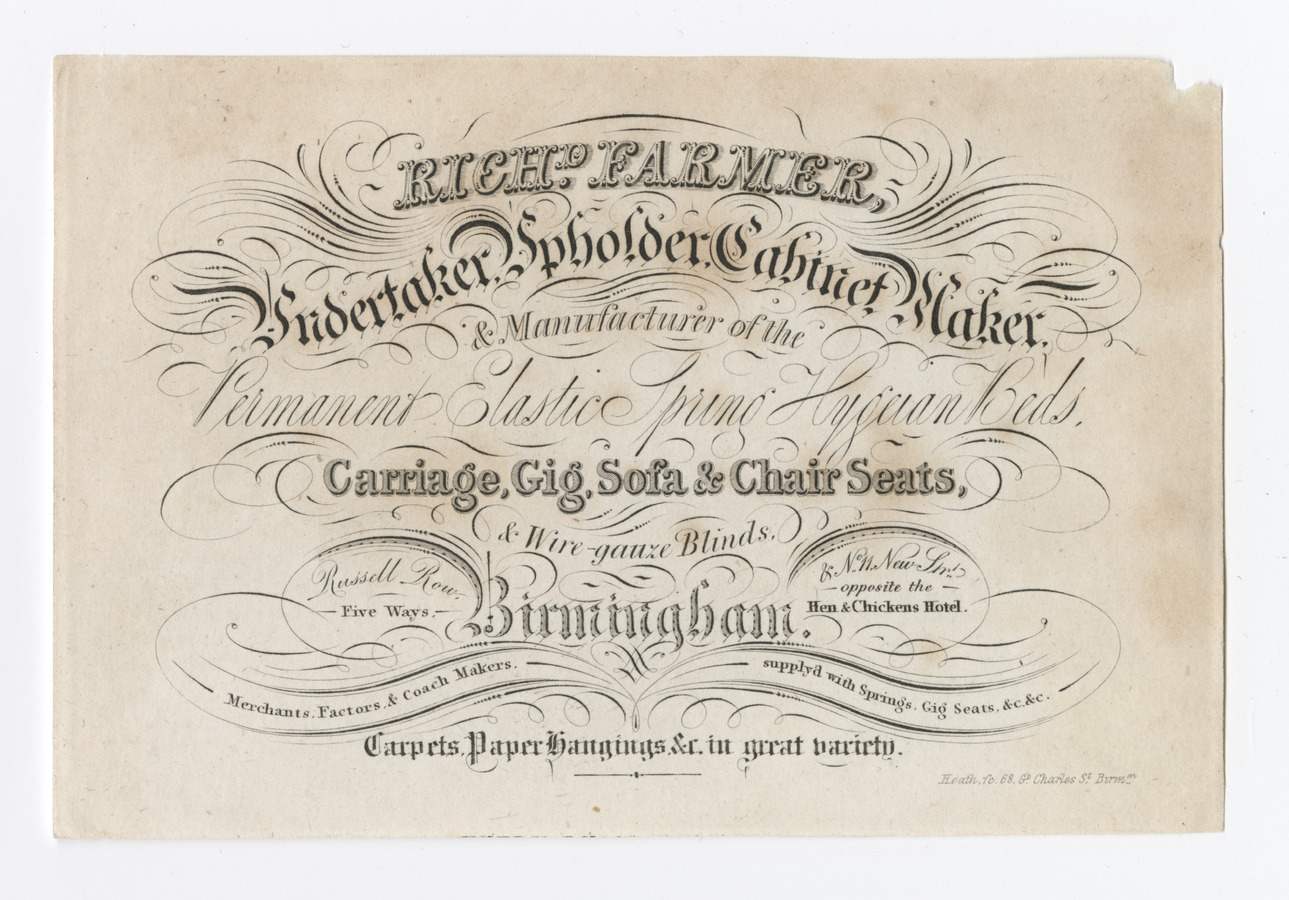 RICHD. FARMER,
Undertaker, Upholder, Cabinet Maker,
& Manufacturer of the
Permanent Elastic Spring Hygeian Beds,
Carriage, Gig, Sofa & Chair Seats,
& Wire-gauze Blinds,
Russell Row
Five Ways,
Birmingham.
& No. 11, New Strt.
opposite the
Hen & Chickens Hotel.
Merchants, Factors, & Coach Makers,
supply'd with Springs, Gig Seats, &c. &c.
Carpets, Paper Hangings, &c. in great variety.
Heath, sc. 68, Gt. Charles St. Birmm.